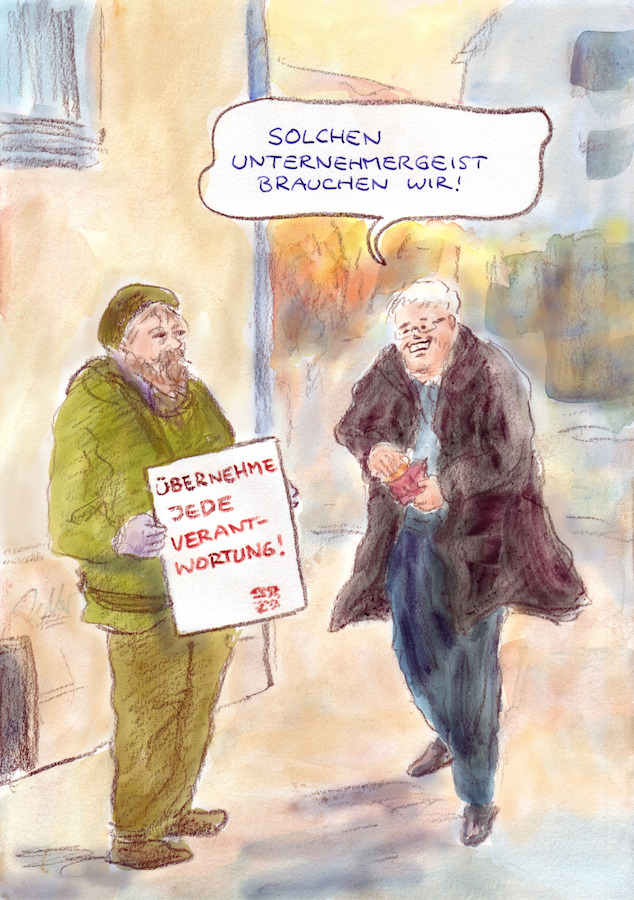 SOLCHEN
UNTERNEHMERGEIST
BRAUCHEN WIR!
ÜBERNEHME
JEDE
VERANT-
WORTUNG!